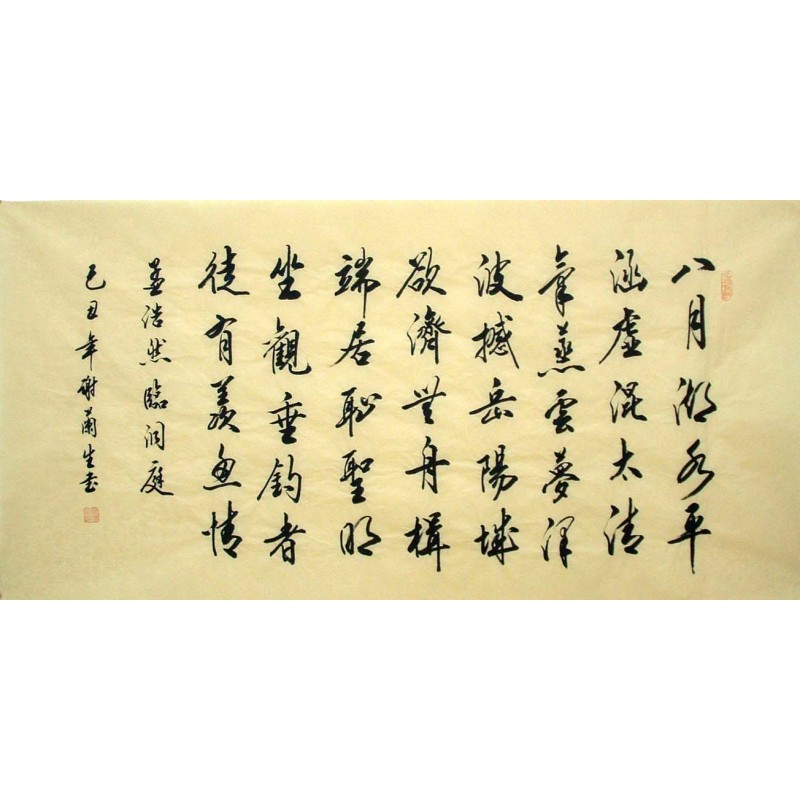 八月湖水平
涵虛混太清
氣蒸雲夢澤
波撼岳陽城
欲濟無舟楫
端居恥聖明
坐觀垂釣者
徒有羨魚情
孟浩然臨洞庭
己丑年謝蘭生書